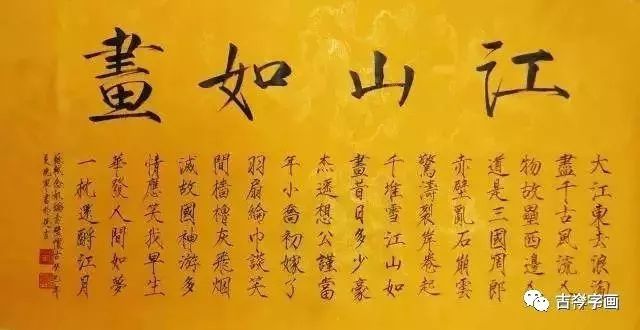 江山如畫
大江東去浪淘
盡千古風流人
物故壘西邊人
道是三國周郎
赤壁亂石崩雲
驚濤裂岸卷起
千堆雪江山如
畫昔日多少豪
杰遙想公謹當
年小喬初嫁了
羽扇綸巾談笑
間檣櫓灰飛烟
滅故國神游多
情應笑我早生
華發人間如夢
一枕還酹江月
蘇軾念奴嬌赤壁懷古
古今字画